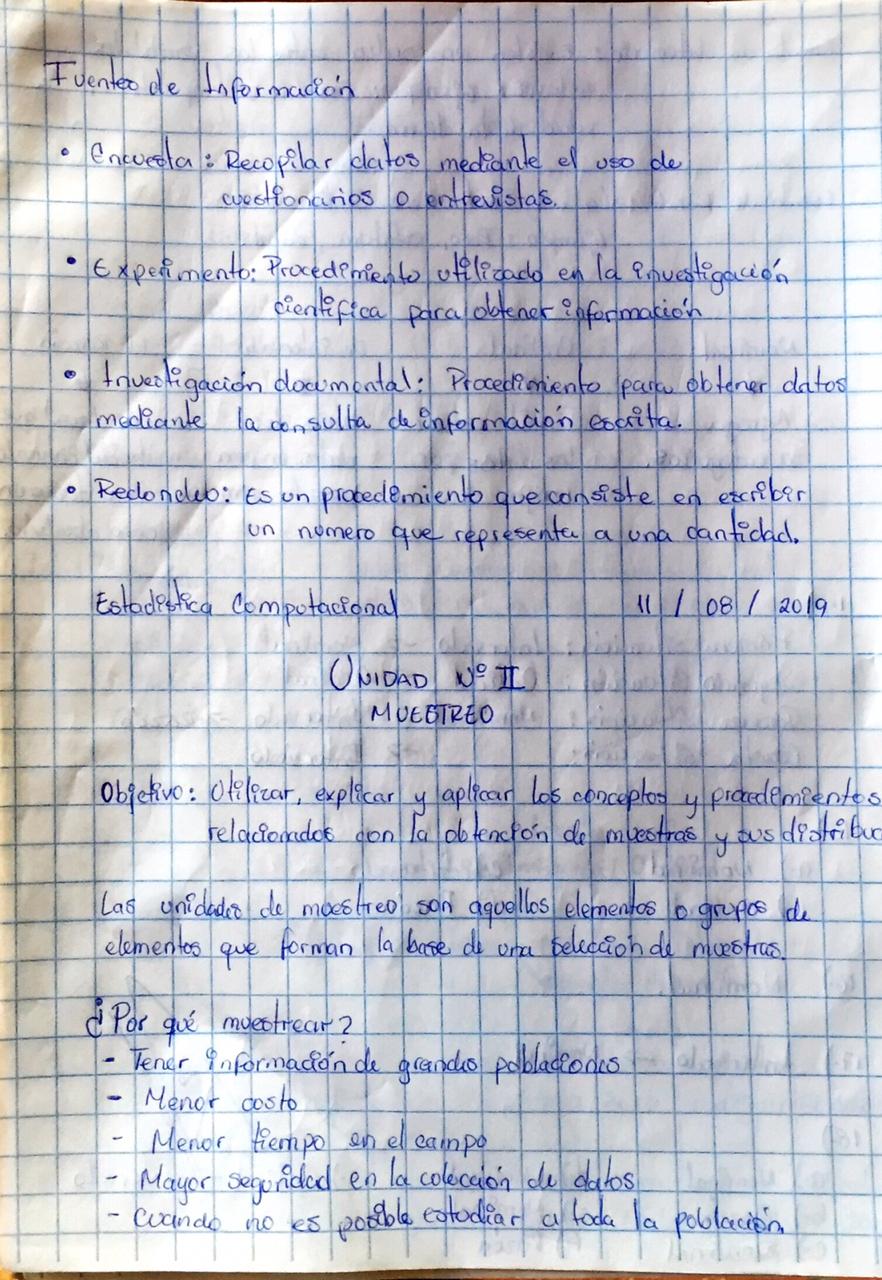 Fuentes de Información
• Encuesta: Recopilar datos mediante el uso de
cuestionarios o entrevistas.
• Experimento: Procedimiento utilizado en la investigación
científica para obtener información
• Investigación documental: Procedimiento para obtener datos
mediante la consulta de información escrita.
• Redondeo: Es un procedimiento que consiste en escribir
un numero que representa a una cantidad.
Estadística Computacional 11 / 08 / 2019
UNIDAD Nº II
MUESTREO
Objetivo: Utilizar, explicar y aplicar los conceptos y procedimientos
relacionados con la obtención de muestras y sus distribuc
Las unidades de muestreo son aquellos elementos o grupos de
elementos que forman la base de una selección de muestras.
¿Por qué muestrear?
- Tener información de grandes poblaciones
- Menor costo
- Menor tiempo en el campo
- Mayor seguridad en la colección de datos
- Cuando no es posible estudiar a toda la población